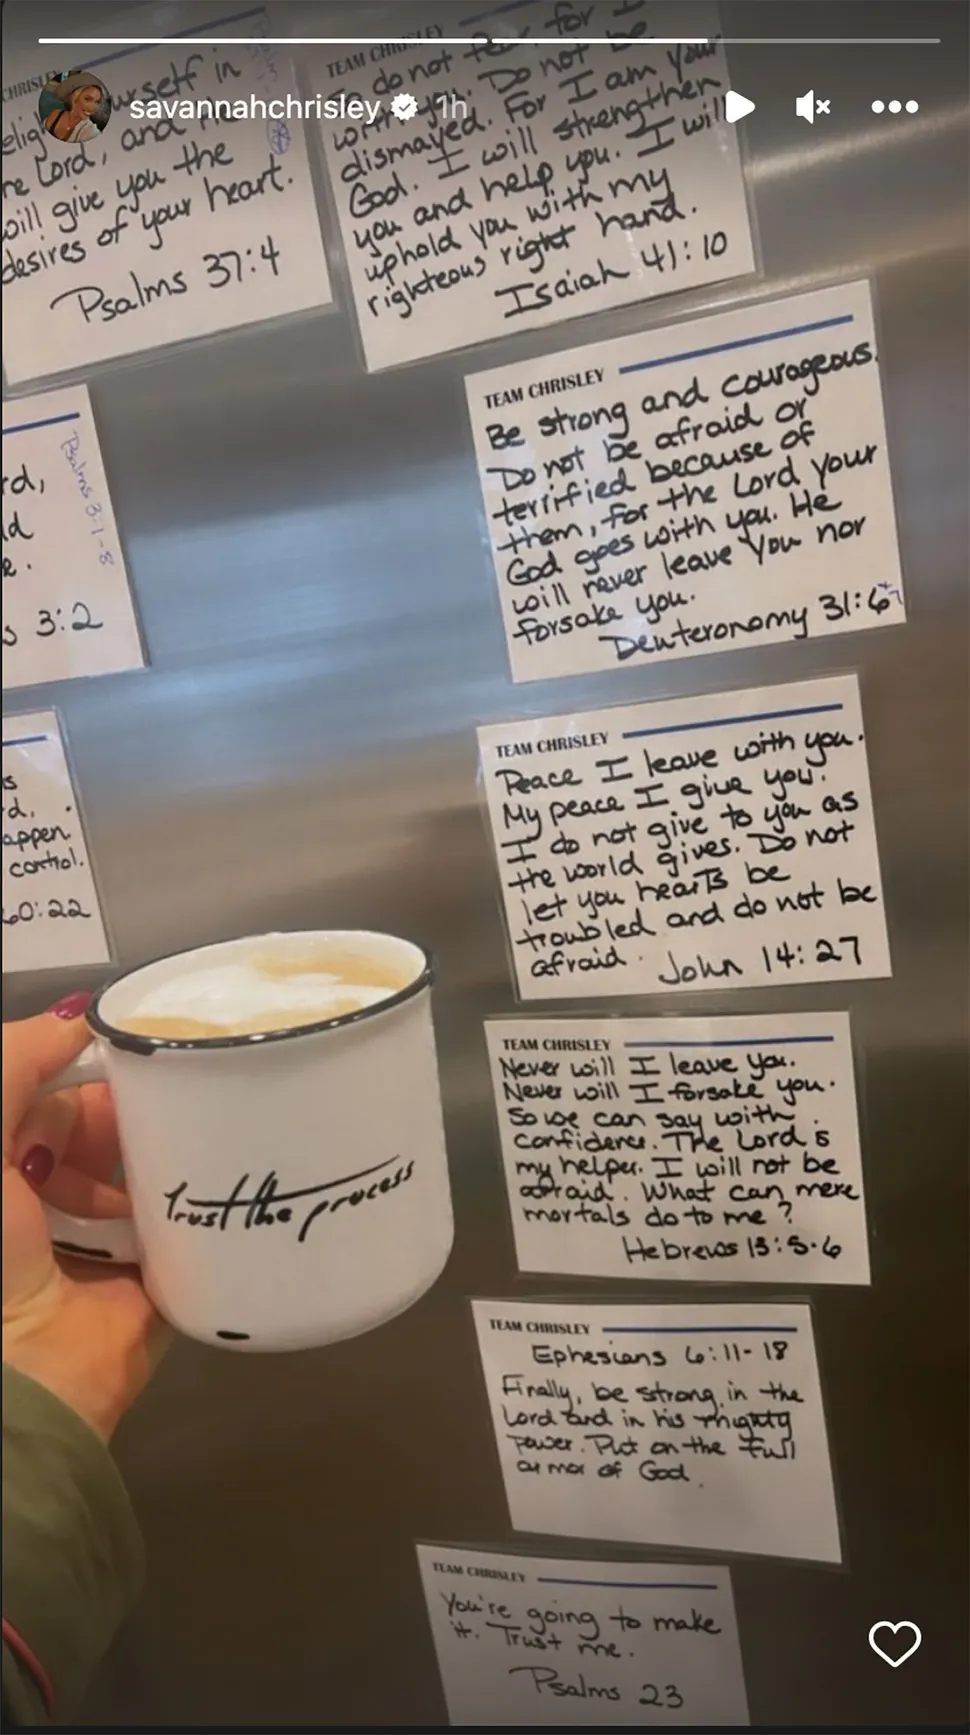 savannahchrisley 1h
CHRISLEY
yourself in
the Lord, and He
will give you the
desires of your heart.
Psalms 37:4
TEAM CHRISLEY
do not fear, for I
with you. Do not be
dismayed. For I am your
God. I will strengthen
you and help you. I will
uphold you with my
righteous right hand.
Isaiah 41:10
rd,
Psalms 3:1-8
d
e.
s 3:2
TEAM CHRISLEY
Be strong and courageous.
Do not be afraid or
terrified because of
them, for the Lord your
God goes with you. He
will never leave you nor
forsake you.
Deuteronomy 31:6
s
d.
appen.
control.
60:22
TEAM CHRISLEY
Peace I leave with you.
My peace I give you.
I do not give to you as
the world gives. Do not
let you hearts be
troubled and do not be
afraid. John 14:27
TEAM CHRISLEY
Never will I leave you.
Never will I forsake you.
So we can say with
confidence. The Lord is
my helper. I will not be
afraid. What can mere
mortals do to me?
Hebrews 13:5-6
Trust the process
TEAM CHRISLEY
Ephesians 6:11-18
Finally, be strong in the
Lord and in his mighty
power. Put on the full
armor of God.
TEAM CHRISLEY
You're going to make
it. Trust me.
Psalms 23